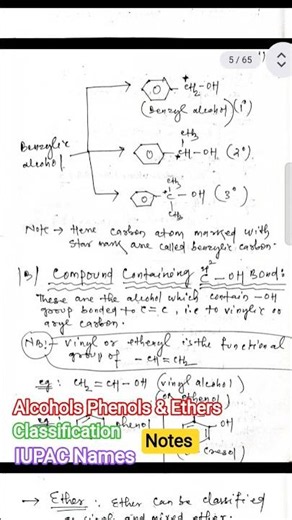 5 / 65
*CH2-OH
(Benzyl alcohol) (1°)
Benzylic
alcohol
CH3
*CH-OH (2°)
CH3
*C-OH (3°)
CH3
Note → Here carbon atom marked with
star mark are called benzylic carbon.
(B) Compound Containing C sp2 -OH Bond:
These are the alcohol which contain -OH
group bonded to C=C, i.e to vinylic or
aryl carbon.
NB:- Vinyl or ethenyl is the functional
group of -CH=CH2
eg: CH2=CH-OH (vinyl alcohol)
Alcohols Phenols & Ethers
Classification
Notes
IUPAC Names
phenol
OH
cresol)
→ Ether: Ether can be classified